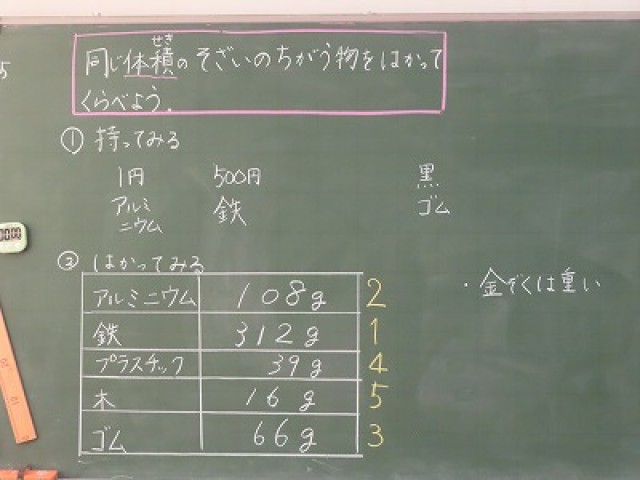 同じ体積のそざいのちがう物をはかって
せき
くらべよう。
① 持ってみる
1円 500円 黒
アルミニウム 鉄 ゴム
② はかってみる
アルミニウム 108g 2
・金ぞくは重い
鉄 312g 1
プラスチック 39g 4
木 16g 5
ゴム 66g 3